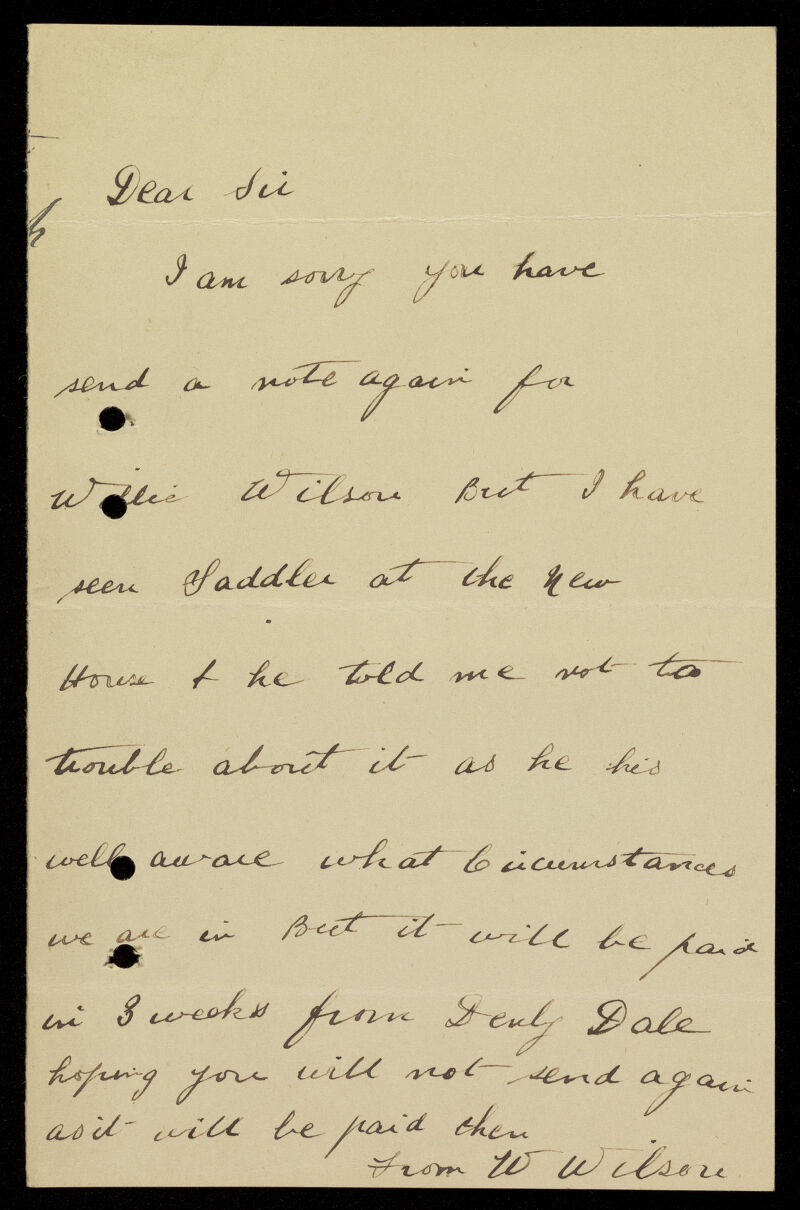 Dear Sir
I am sorry you have
send a note again for
Willie Wilson But I have
seen Saddler at the New
House & he told me not to
trouble about it as he his
well aware what Circumstances
we are in But it will be paid
in 3 weeks from Denby Dale
hoping you will not send again
as it will be paid then
From W Wilson